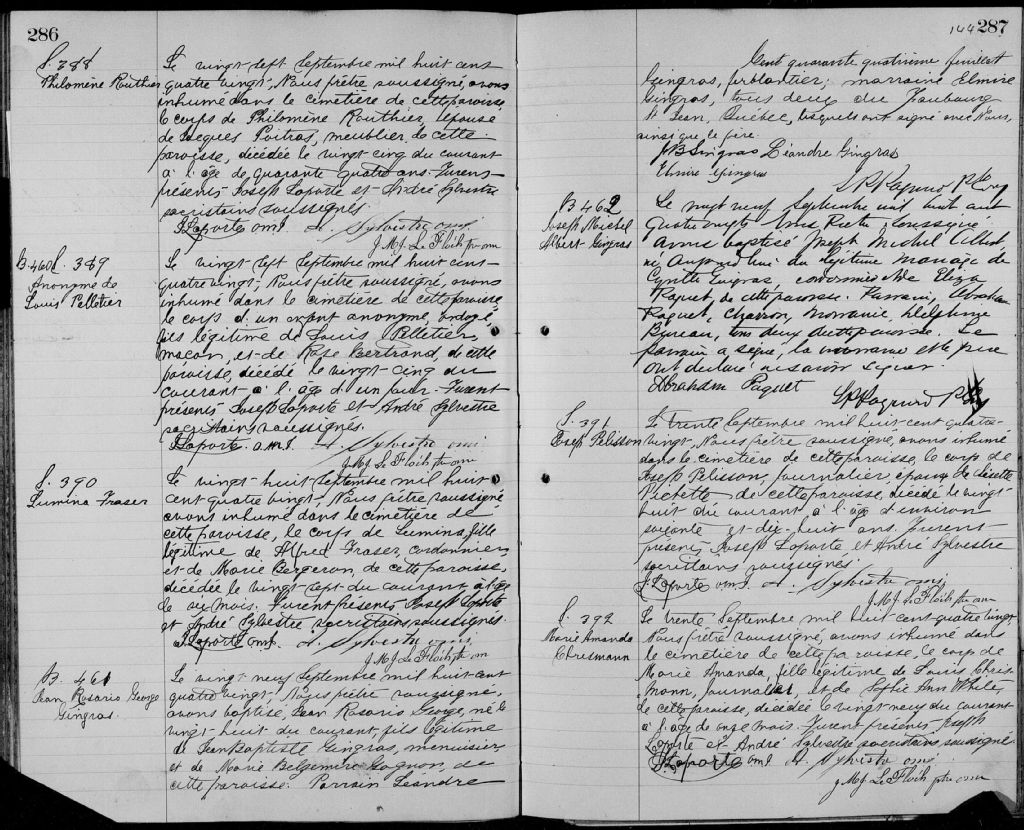 286
S. 388
Philomène Routhier
Le vingt-sept Septembre mil huit cent
quatre vingt, Nous prêtre soussigné, avons
inhumé dans le cimetière de cette paroisse
le corps de Philomène Routhier, épouse
de Jacques Poitras, meublier de cette
paroisse, décédée le vingt-cinq du courant
à l'âge de quarante quatre ans. Furent
présents Joseph Laporte et André Sylvestre
sacristains soussignés.
J. Laporte omi A. Sylvestre omi
J. M. J. Le Floch ptr omi
B. 460 S. 389
Anonyme de
Louis Pelletier
Le vingt-sept Septembre mil huit cent
quatre vingt, Nous prêtre soussigné, avons
inhumé dans le cimetière de cette paroisse
le corps d'un enfant anonyme, ondoyé,
fils légitime de Louis Pelletier,
maçon, et de Rose Bertrand, de cette
paroisse, décédé le vingt-cinq du
courant à l'âge d'un jour. Furent
présents Joseph Laporte et André Sylvestre
sacristains soussignés.
J. Laporte o.m.i. A. Sylvestre omi
J. M. J. Le Floch ptr omi
S. 390
Lumina Fraser
Le vingt-huit Septembre mil huit
cent quatre vingt, Nous prêtre soussigné
avons inhumé dans le cimetière de
cette paroisse, le corps de Lumina, fille
légitime de Alfred Fraser, cordonnier
et de Marie Bergeron, de cette paroisse,
décédée le vingt-sept du courant à l'âge
de six mois. Furent présents Joseph Laporte
et André Sylvestre sacristains, soussignés.
J. Laporte omi A. Sylvestre omi
J. M. J. Le Floch ptr omi
B. 461
Jean Rosario George
Gingras.
Le vingt neuf Septembre mil huit cent
quatre vingt, Nous prêtre soussigné,
avons baptisé, Jean Rosario George, né le
vingt-huit du courant, fils légitime
de Jean Baptiste Gingras, menuisier
et de Marie Belgemire Gagnon, de
cette paroisse. Parrain Léandre
144 287
Cent quarante quatrième feuillet
Gingras, ferblantier; marraine Elmire
Gingras, tous deux du Faubourg
St Jean, Québec, lesquels ont signé avec Nous,
ainsi que le père.
J B Gingras Léandre Gingras
Elmire Gingras
B. 462
Joseph Michel
Albert Gingras
Le vingt neuf Septembre mil huit cent
quatre vingts Nous Prêtre, soussigné
avons baptisé Joseph Michel Albert
né Aujourd'hui du légitime mariage de
Gingras, cordonnier et de Eliza
Paquet, de cette paroisse. Parrain, Abraham
Paquet, Charron, Marraine, Delphine
Bureau, tous deux de cette paroisse. Le
parrain a signé, la marraine et le père
ont déclaré ne savoir signer.
Abraham Paquet
S. 391
Joseph Pelisson
Le trente Septembre mil huit-cent quatre-
vingt, Nous prêtre soussigné, avons inhumé
dans le cimetière de cette paroisse, le corps de
Joseph Pelisson, journalier, époux de
Pichette de cette paroisse, décédé le vingt-
huit du courant, à l'âge d'environ
soixante et-dix-huit ans. Furent
présents, Joseph Laporte, et André Sylvestre
sacristains soussignés.
J. Laporte omi A. Sylvestre omi
J. M. J. Le Floch ptr omi
S. 392
Marie Amanda
Chrismann
Le trente Septembre mil huit cent quatre vingt
Nous prêtre soussigné, avons inhumé dans
le cimetière de cette paroisse, le corps de
Marie Amanda, fille légitime de Louis Chris-
mann, journalier, et de Sophie Ann White,
de cette paroisse, décédée le vingt neuf du courant
à l'âge de onze mois. Furent présents Joseph
Laporte et André Sylvestre sacristains, soussignés.
J. Laporte omi A. Sylvestre omi
J. M. J. Le Floch ptr omi